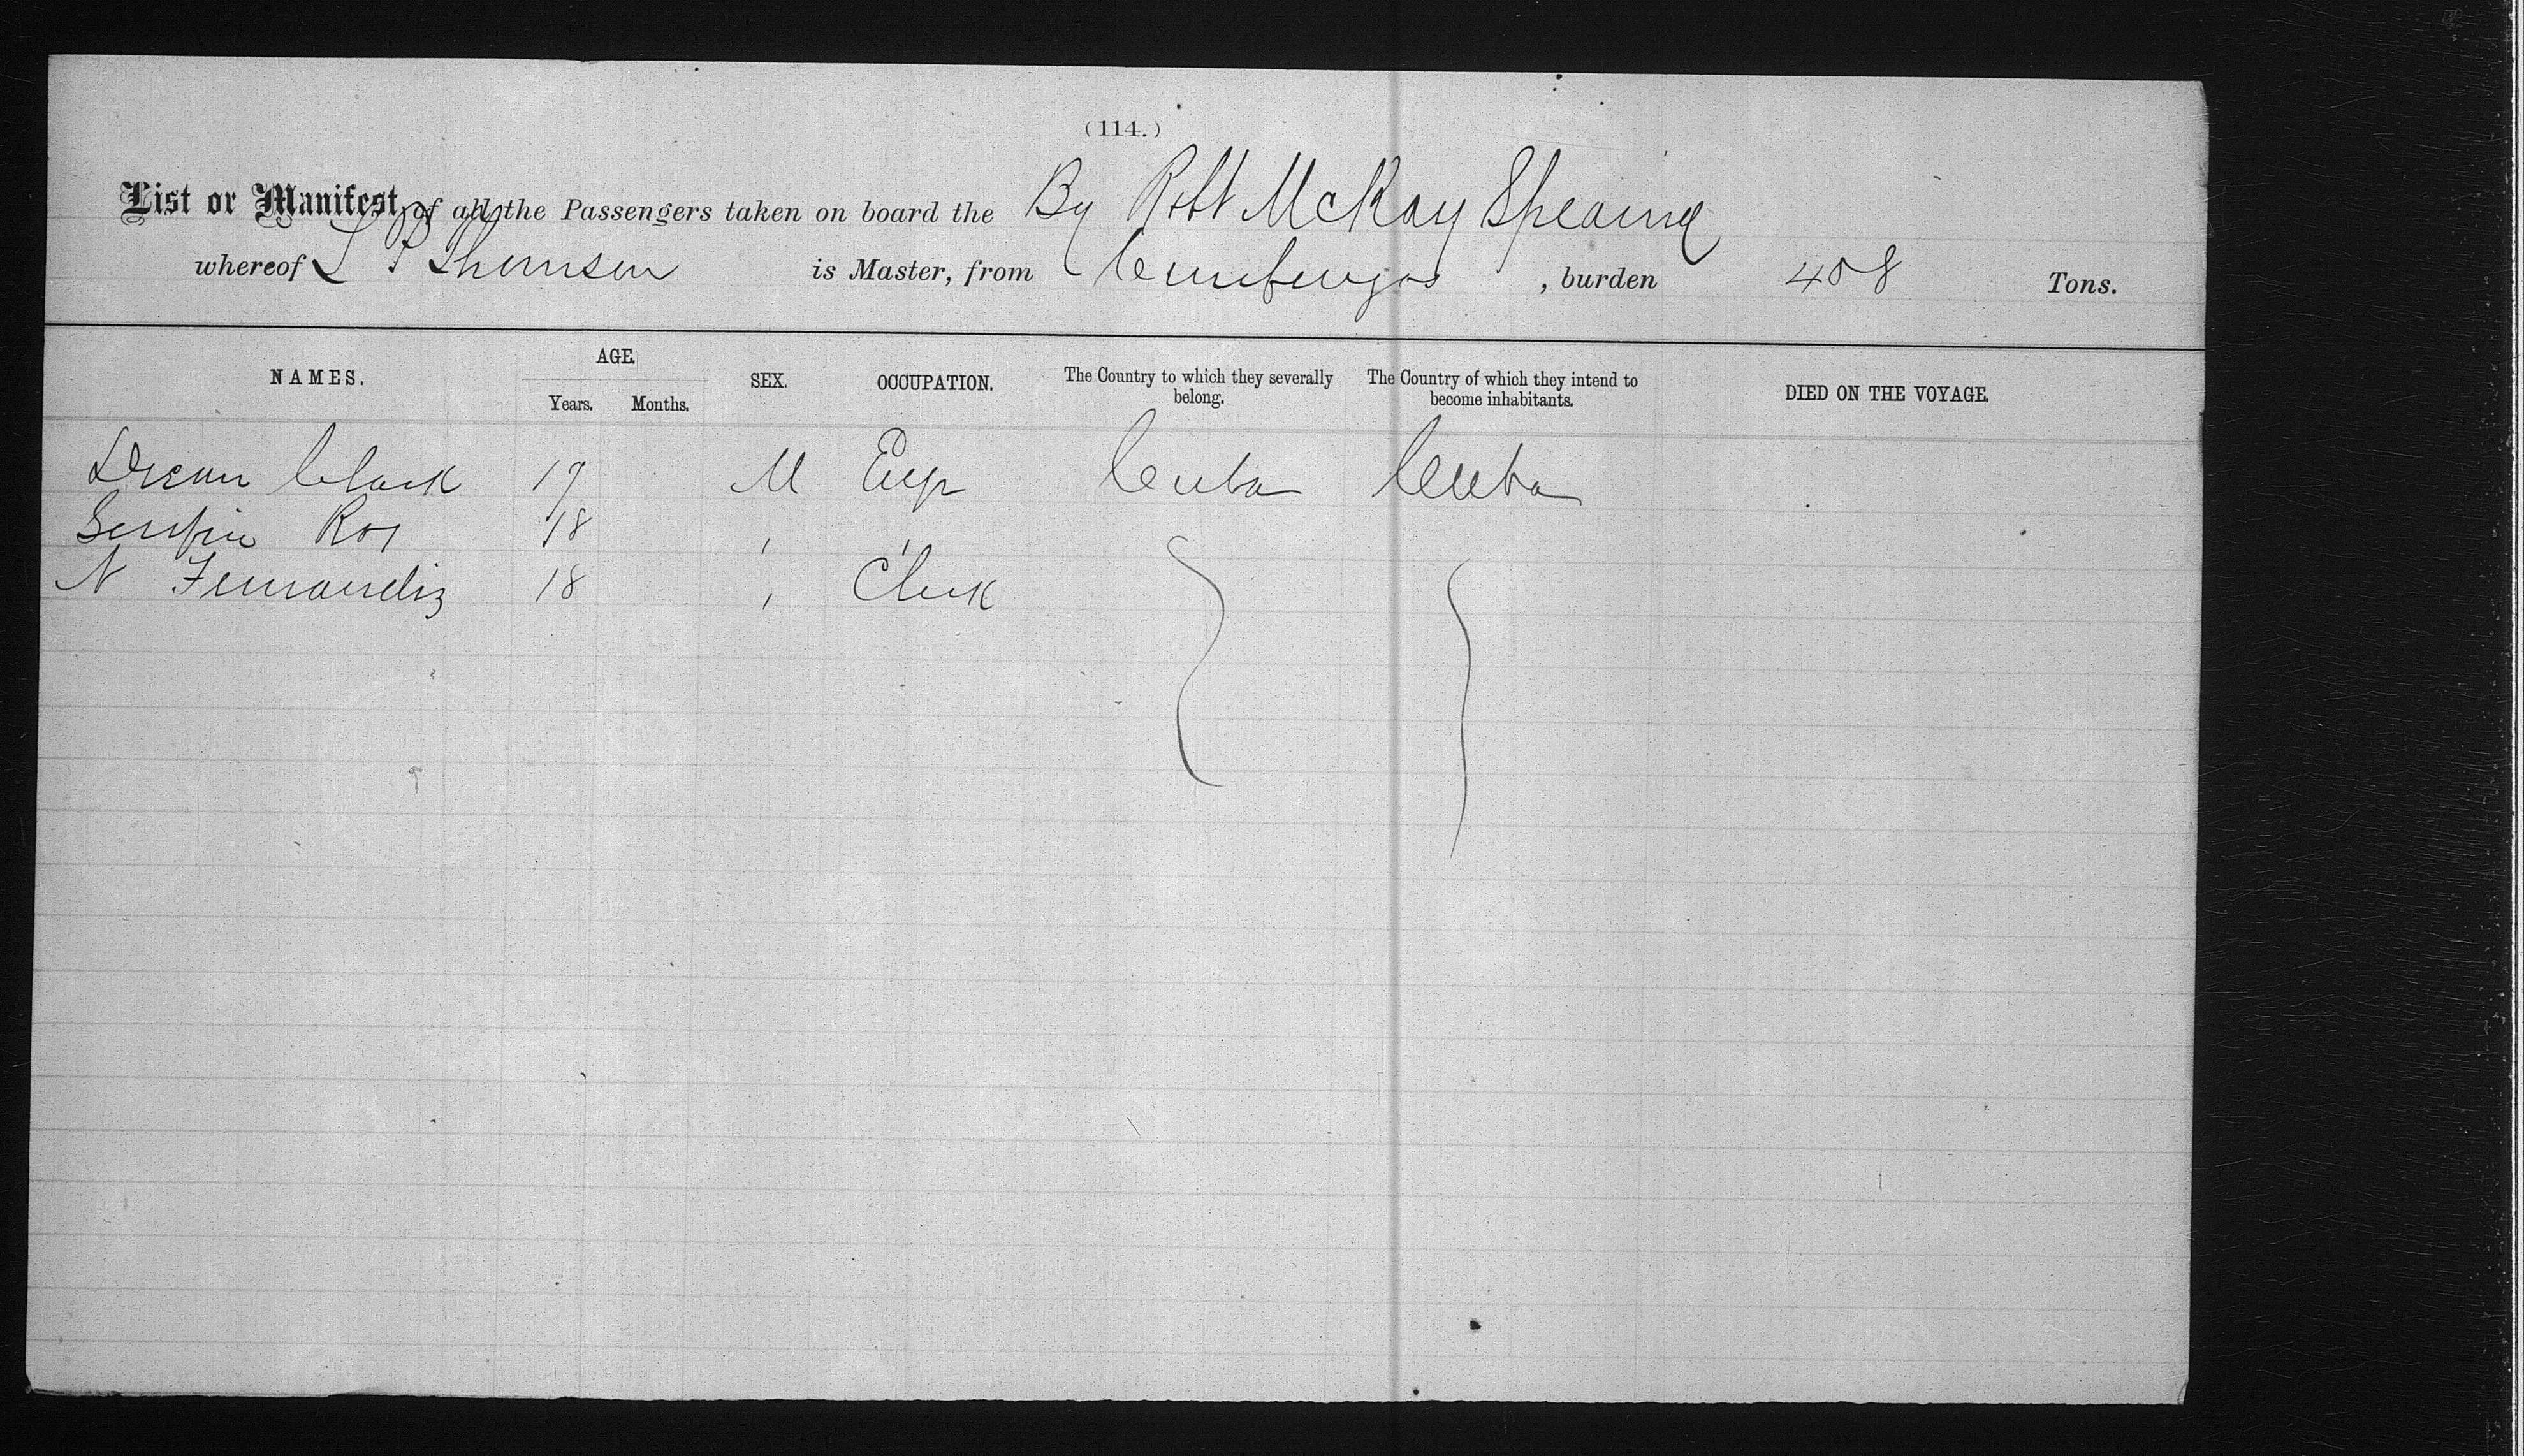 (114.)
List or Manifest, of all the Passengers taken on board the By Robt McKay Spearing
whereof L P Thomson is Master, from Cienfuegos , burden 408 Tons.
NAMES. AGE. SEX. OCCUPATION. The Country to which they severally belong. The Country of which they intend to become inhabitants. DIED ON THE VOYAGE.
Years. Months.
Clark 19 M Cuba Cuba
Ros 18 '' ''
N Fernandiz 18 '' Clerk